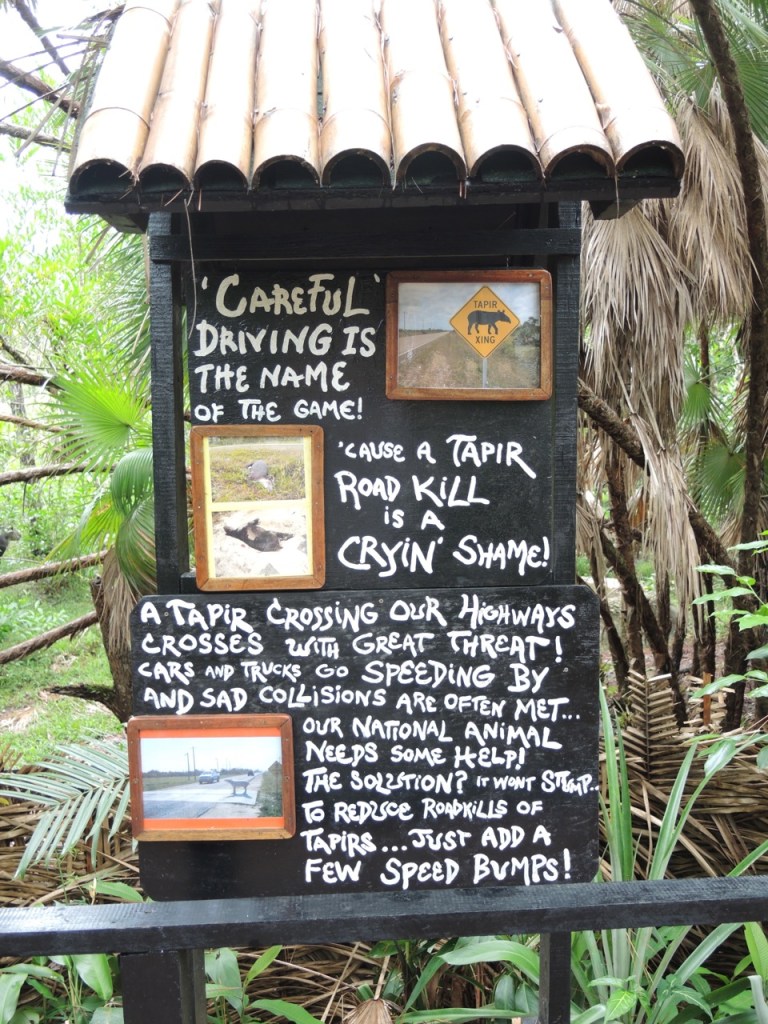 'CAREFUL'
DRIVING IS
THE NAME
OF THE GAME!
TAPIR
XING
'CAUSE A TAPIR
ROAD KILL
IS A
CRYIN' SHAME!
A TAPIR CROSSING OUR HIGHWAYS
CROSSES WITH GREAT THREAT!
CARS AND TRUCKS GO SPEEDING BY
AND SAD COLLISIONS ARE OFTEN MET...
OUR NATIONAL ANIMAL
NEEDS SOME HELP!
THE SOLUTION? IT WONT STUMP..
TO REDUCE ROADKILLS OF
TAPIRS...JUST ADD A
FEW SPEED BUMPS!